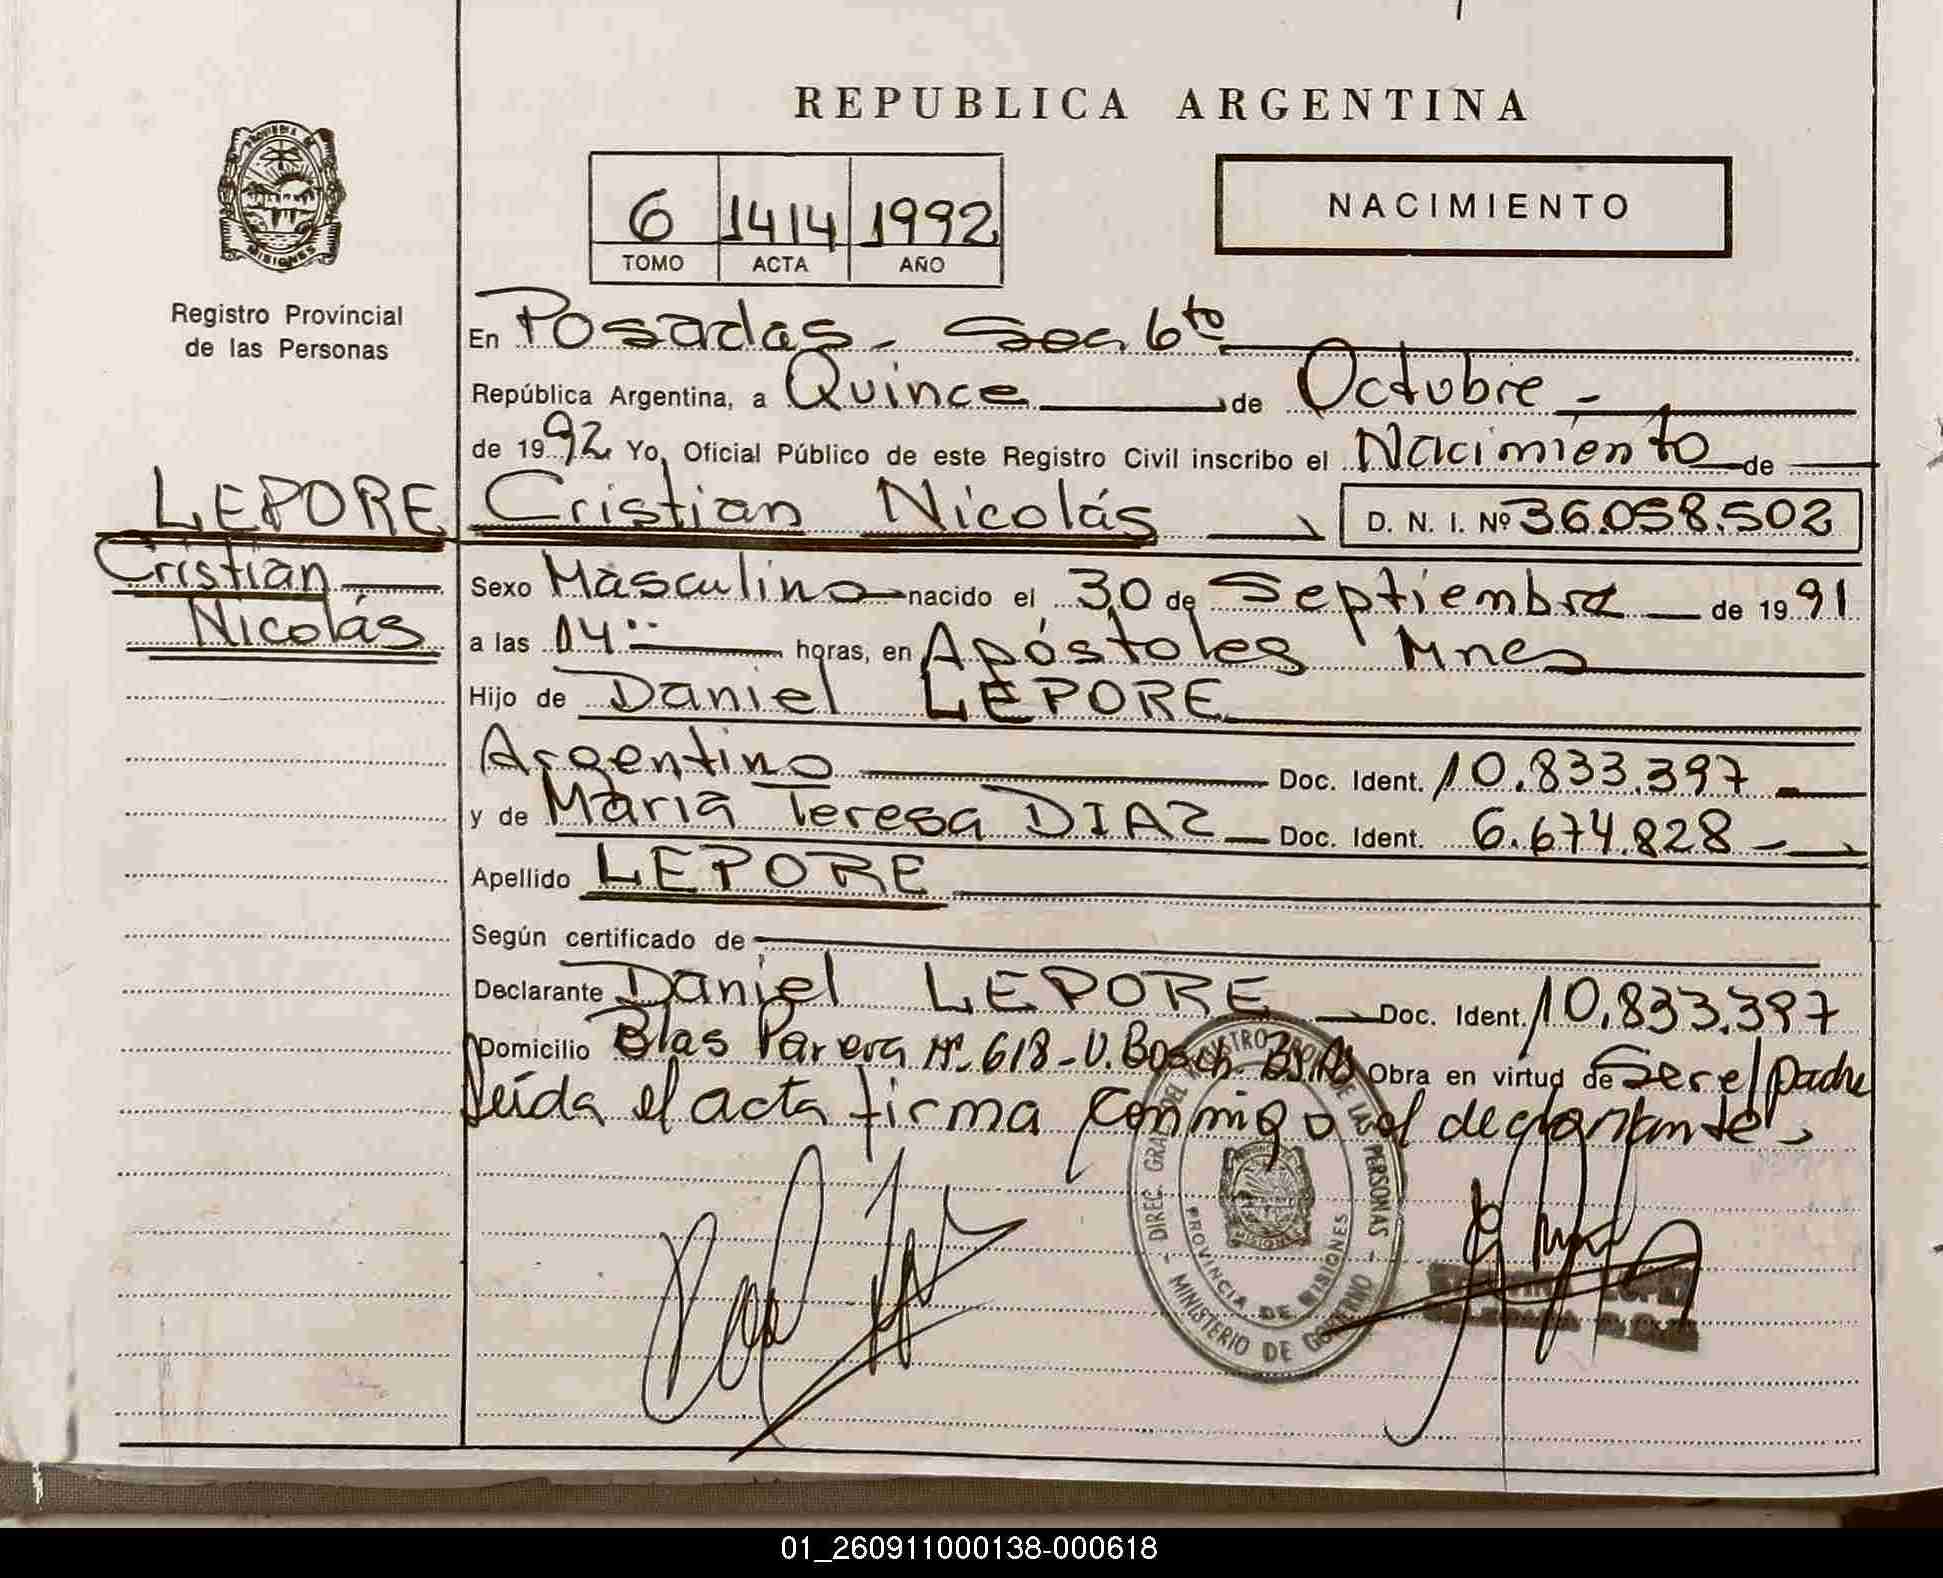 REPUBLICA ARGENTINA
NACIMIENTO
6 1414 1992
TOMO ACTA AÑO
Registro Provincial
de las Personas
En Posadas - Sec. 6to
República Argentina, a Quince de Octubre -
de 1992 Yo, Oficial Público de este Registro Civil inscribo el Nacimiento de
LEPORE
Cristian
Nicolás
Cristian Nicolás D. N. I. Nº 36.058.502
Sexo Masculino nacido el 30 de Septiembre de 1991
a las 04 horas, en Apóstoles Mnes
Hijo de Daniel LEPORE
Argentino Doc. Ident. 10.833.397
y de María Teresa DIAZ Doc. Ident. 6.674.828
Apellido LEPORE
Según certificado de
Declarante Daniel LEPORE Doc. Ident. 10.833.397
Domicilio Blas Parera Nº 618 - V. Bosch Bs As Obra en virtud de Ser el padre
leída el acta firma conmigo el declarante.
DIREC. GRAL. DEL REGISTRO PROV. DE LAS PERSONAS
PROVINCIA DE MISIONES
MINISTERIO DE GOBIERNO
MISIONES
01_260911000138-000618